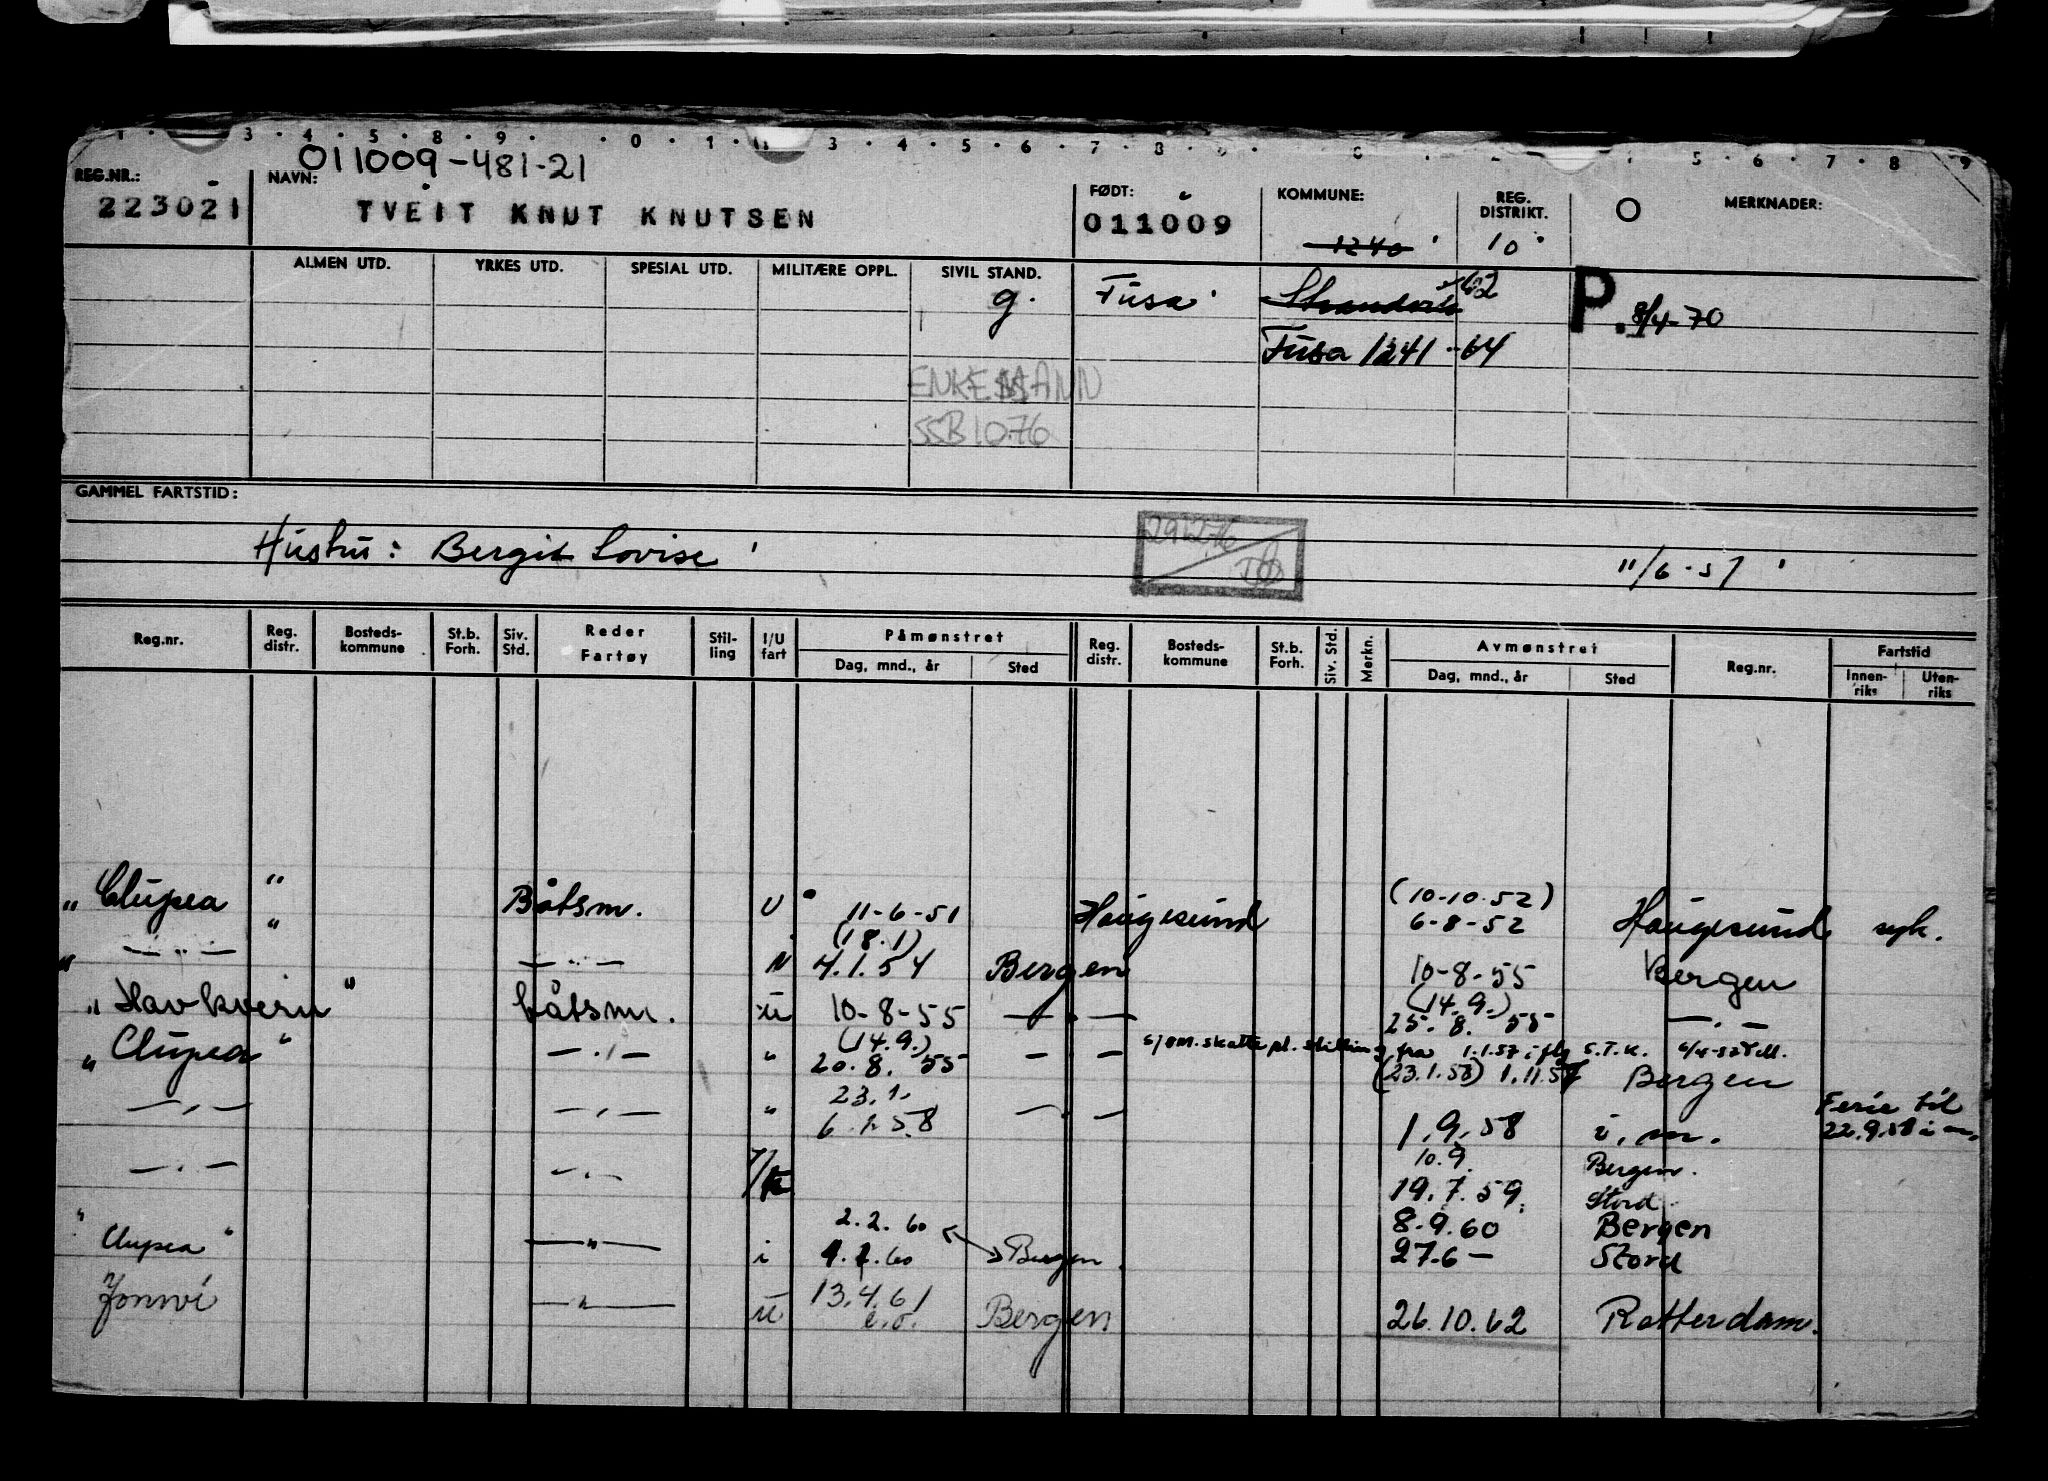 011009-481-21
REG.NR.: NAVN: FØDT: KOMMUNE: REG. DISTRIKT. O MERKNADER:
223021 TVEIT KNUT KNUTSEN 011009 1240 10
ALMEN UTD. YRKES UTD. SPESIAL UTD. MILITÆRE OPPL. SIVIL STAND.
g. Fusa 62 P. 8/4-70
Fusa 1241 -64
ENKEMANN
SSB 10.76
GAMMEL FARTSTID:
Hustru: Bergit Lovise 291276 11/6-57
Reg.nr. Reg. distr. Bosteds-kommune St.b. Forh. Siv. Std. Reder Fartøy Stil-ling I/U fart Påmønstret Reg. distr. Bosteds-kommune St.b. Forh. Siv. Std. Merkn. Avmønstret Reg.nr. Fartstid
Dag, mnd., år Sted Dag, mnd., år Sted Innen-riks Uten-riks
(10-10-52)
"Clupea" Båtsm. U 11-6-51 Haugesund 6-8-52 Haugesund syk.
(18.1)
" —„— " —„— " 4.1.54 Bergen 10-8-55 Bergen
(14.9.)
"Havkvern" båtsm. u 10-8-55 —„— 25.8.55 —„—
(14.9.) sjøm.skatte pl. stilling fra 1.1.57 i flg S.T.K.
"Clupea" —„— " 20.8.55 —„— (23.1.58) 1.11.57 Bergen
23.1. Ferie til
—„— —„— " 6.1.58 —„— 1.9.58 i.m. 22.9.58 i m.
10.9. Bergen.
—„— —„— 19.7.59. Stord
2.2.60 8.9.60 Bergen
"Clupea" —„— i 1.2.60 Bergen. 27.6 — Stord
Jonwi —„— u 13.4.61 Bergen 26.10.62 Rotterdam.
e.o.